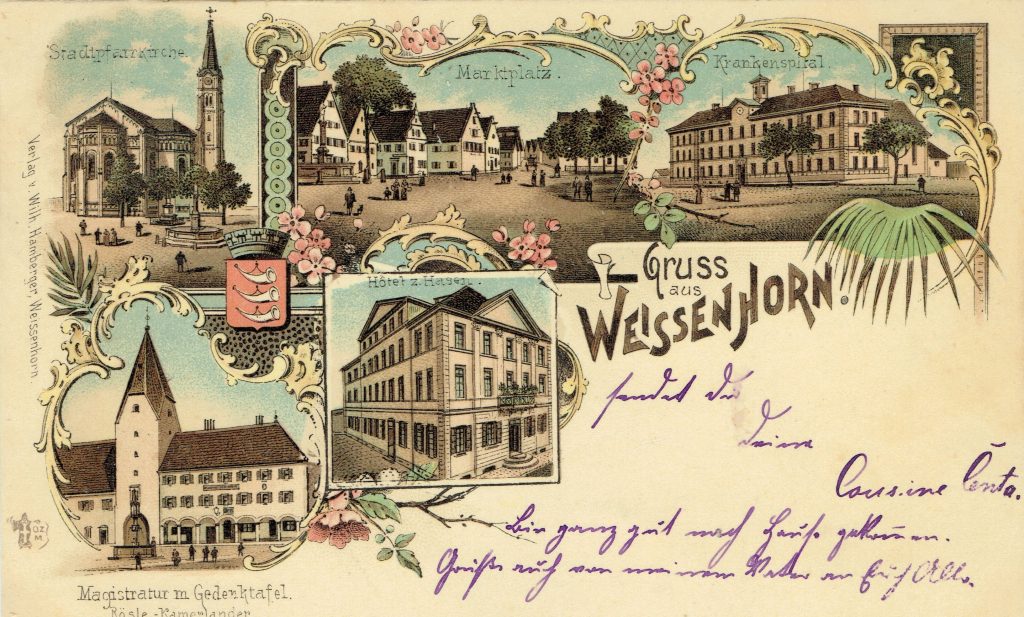 Stadtpfarrkirche.
Marktplatz.
Krankenspital.
Verlag v. Wilh. Hamberger Weissenhorn.
Hôtel z. Hasen.
Gruss
aus
WEISSENHORN.
sendet dir
Deine
Cousine Centa.
Bin ganz gut nach Hause gekom̄en.
Grüße auch von meinem Vater an Euch Alle.
Magistratur m Gedenktafel.
Rösle-Kamerlander
OZ
M